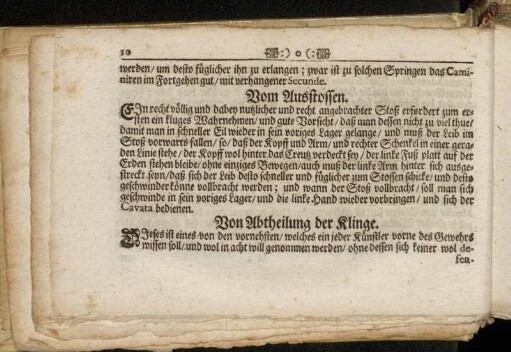 10 :) o (:
werden / um desto füglicher ihn zu erlangen ; zwar ist zu solchen Springen das Cami-
niren im Fortgehen gut / mit verhangener Secunde.
Vom Ausstossen.
EIn recht völlig und dabey nutzlicher und recht angebrachter Stoß erfordert zum er-
sten ein kluges Wahrnehmen / und gute Vorsicht / daß man dessen nicht zu viel thue /
damit man in schneller Eil wieder in sein voriges Lager gelange / und muß der Leib im
Stoß vorwarts fallen / so / daß der Kopff und Arm / und rechter Schenckel in einer gera-
den Linie stehe / der Kopff wol hinter das Creutz verdeckt sey / der lincke Fuß platt auf der
Erden stehen bleibe / ohne einziges Bewegen / auch muß der linke Arm hinter sich ausge-
streckt seyn / daß sich der Leib desto schneller und füglicher zum Stossen schicke / und desto
geschwinder könne vollbracht werden ; und wann der Stoß vollbracht / soll man sich
geschwinde in sein voriges Lager / und die linke Hand wieder vorbringen / und sich der
Cavata bedienen.
Von Abtheilung der Klinge.
DIeses ist eines von den vornehsten / welches ein jeder Künstler vorne des Gewehrs
wissen soll / und wol in acht will genommen werden / ohne dessen sich keiner wol de-
fen-